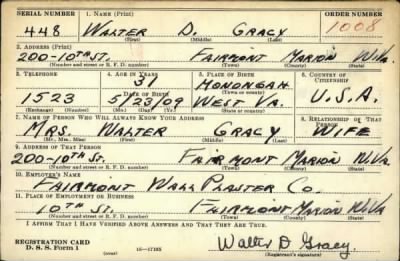 SERIAL NUMBER 1. NAME (Print) ORDER NUMBER
448 WALTER D. GRACY 1008
(First) (Middle) (Last)
2. ADDRESS (Print)
200-10TH ST. FAIRMONT MARION W.VA.
(Number and street or R. F. D. number) (Town) (County) (State)
3. TELEPHONE 4. AGE IN YEARS 5. PLACE OF BIRTH 6. COUNTRY OF CITIZENSHIP
31 MONONGAH
DATE OF BIRTH (Town or county)
1523 5/23/09 WEST VA. U.S.A.
(Exchange) (Number) (Mo.) (Day) (Yr.) (State or country)
7. NAME OF PERSON WHO WILL ALWAYS KNOW YOUR ADDRESS 8. RELATIONSHIP OF THAT PERSON
MRS. WALTER GRACY WIFE
(Mr., Mrs., Miss) (First) (Middle) (Last)
9. ADDRESS OF THAT PERSON
200-10TH ST. FAIRMONT MARION W.VA
(Number and street or R. F. D. number) (Town) (County) (State)
10. EMPLOYER'S NAME
FAIRMONT WALL PLASTER CO.
11. PLACE OF EMPLOYMENT OR BUSINESS
10TH ST. FAIRMONT MARION W.VA
(Number and street or R. F. D. number) (Town) (County) (State)
I AFFIRM THAT I HAVE VERIFIED ABOVE ANSWERS AND THAT THEY ARE TRUE.
REGISTRATION CARD
D. S. S. Form 1 (over) 16—17105 Walter D Gracy.
(Registrant's signature)